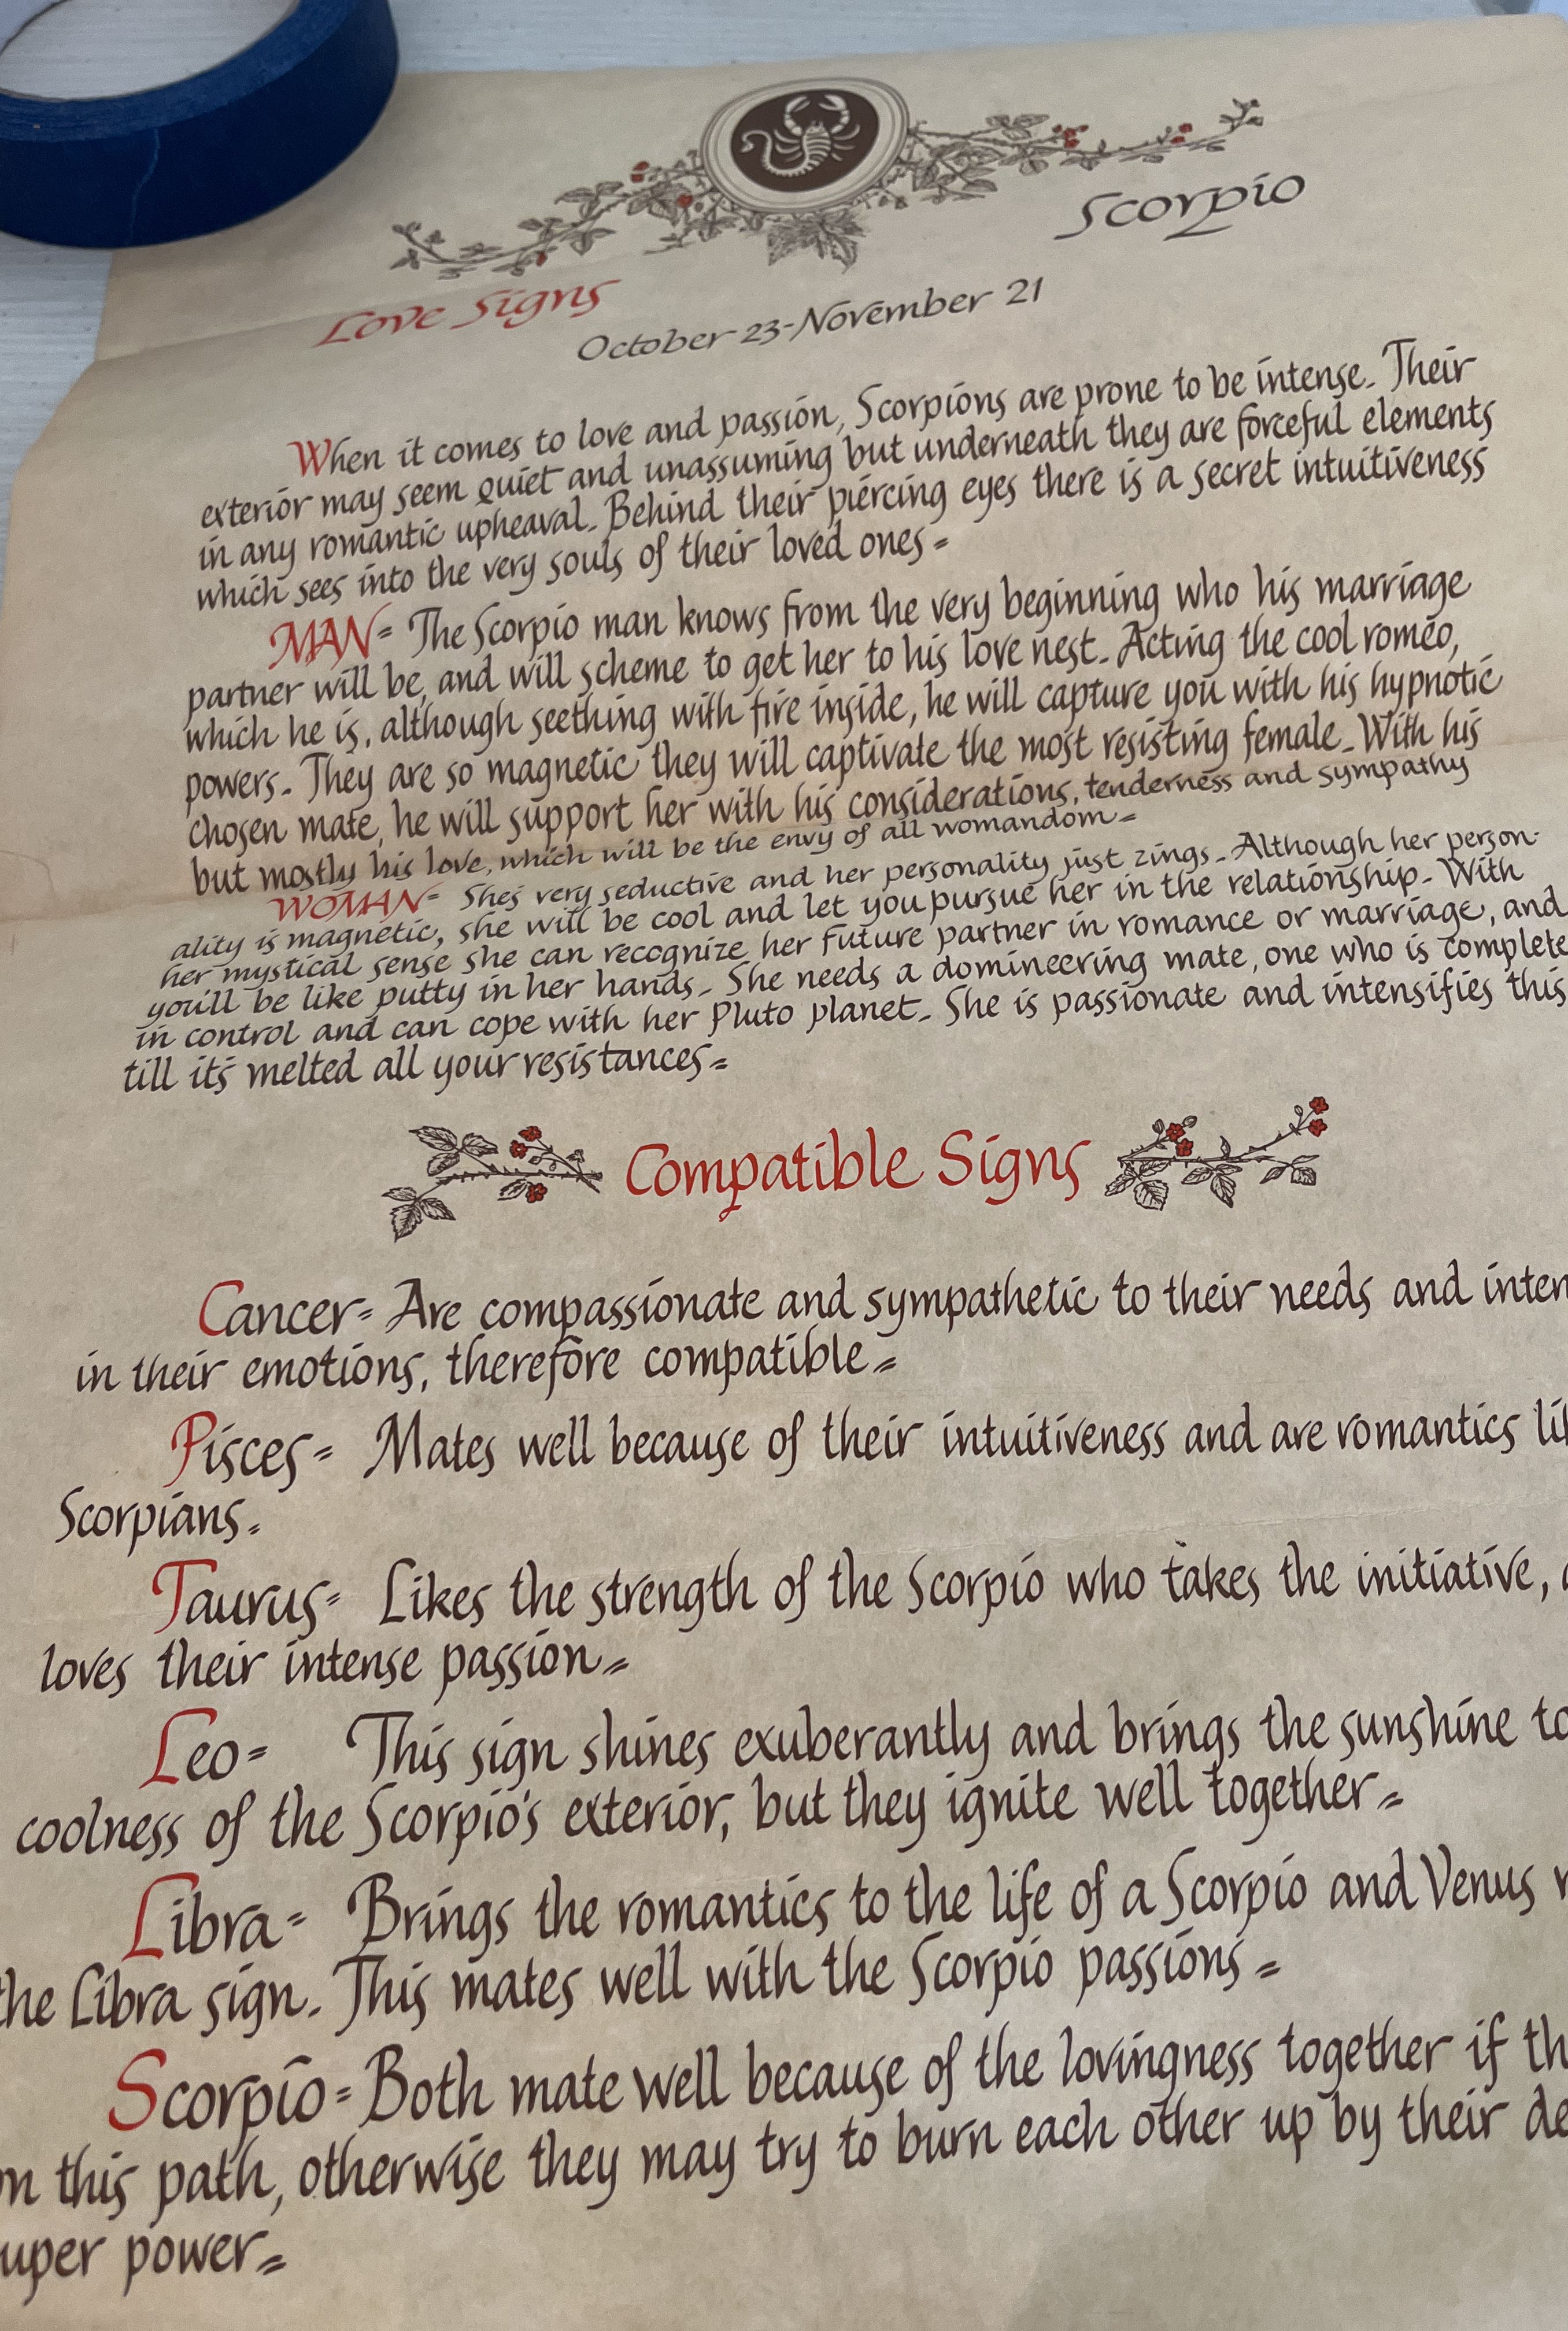 Scorpio
Love Signs
October 23-November 21
When it comes to love and passion, Scorpions are prone to be intense. Their
exterior may seem quiet and unassuming but underneath they are forceful elements
in any romantic upheaval. Behind their piercing eyes there is a secret intuitiveness
which sees into the very souls of their loved ones=
MAN= The Scorpio man knows from the very beginning who his marriage
partner will be, and will scheme to get her to his love nest. Acting the cool romeo,
which he is, although seething with fire inside, he will capture you with his hypnotic
powers. They are so magnetic they will captivate the most resisting female. With his
chosen mate, he will support her with his considerations, tenderness and sympathy
but mostly his love, which will be the envy of all womandom=
WOMAN= She's very seductive and her personality just zings. Although her person-
ality is magnetic, she will be cool and let you pursue her in the relationship. With
her mystical sense she can recognize her future partner in romance or marriage, and
you'll be like putty in her hands. She needs a domineering mate, one who is complete
in control and can cope with her Pluto planet. She is passionate and intensifies this
till it's melted all your resistances=
Compatible Signs
Cancer= Are compassionate and sympathetic to their needs and inten
in their emotions, therefore compatible=
Pisces= Mates well because of their intuitiveness and are romantics li
Scorpians=
Taurus= Likes the strength of the Scorpio who takes the initiative,
loves their intense passion=
Leo= This sign shines exuberantly and brings the sunshine to
coolness of the Scorpio's exterior, but they ignite well together=
Libra= Brings the romantics to the life of a Scorpio and Venus
the Libra sign. This mates well with the Scorpio passions=
Scorpio= Both mate well because of the lovingness together if th
n this path, otherwise they may try to burn each other up by their de
uper power=